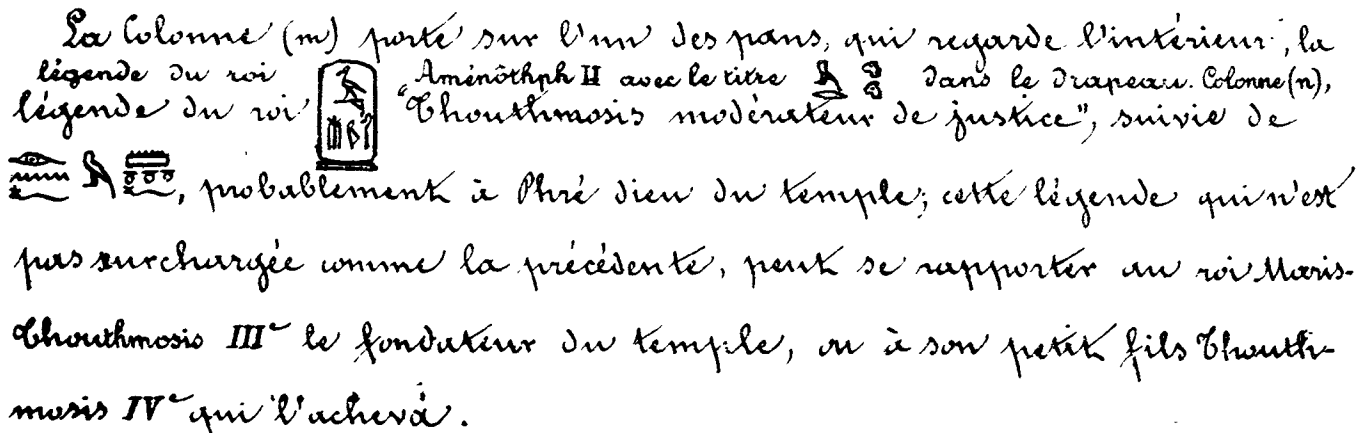 La Colonne (m) porte sur l'un des pans, qui regarde l'intérieur, la
légende du roi Aménôthph II avec le titre dans le drapeau. Colonne (n),
légende du roi "Thouthmosis modérateur de justice", suivie de
, probablement à Phré dieu du temple; cette légende qui n'est
pas surchargée comme la précédente, peut se rapporter au roi Mœris-
Thouthmosis IIIe le fondateur du temple, ou à son petit fils Thouth-
mosis IVe qui l'acheva.